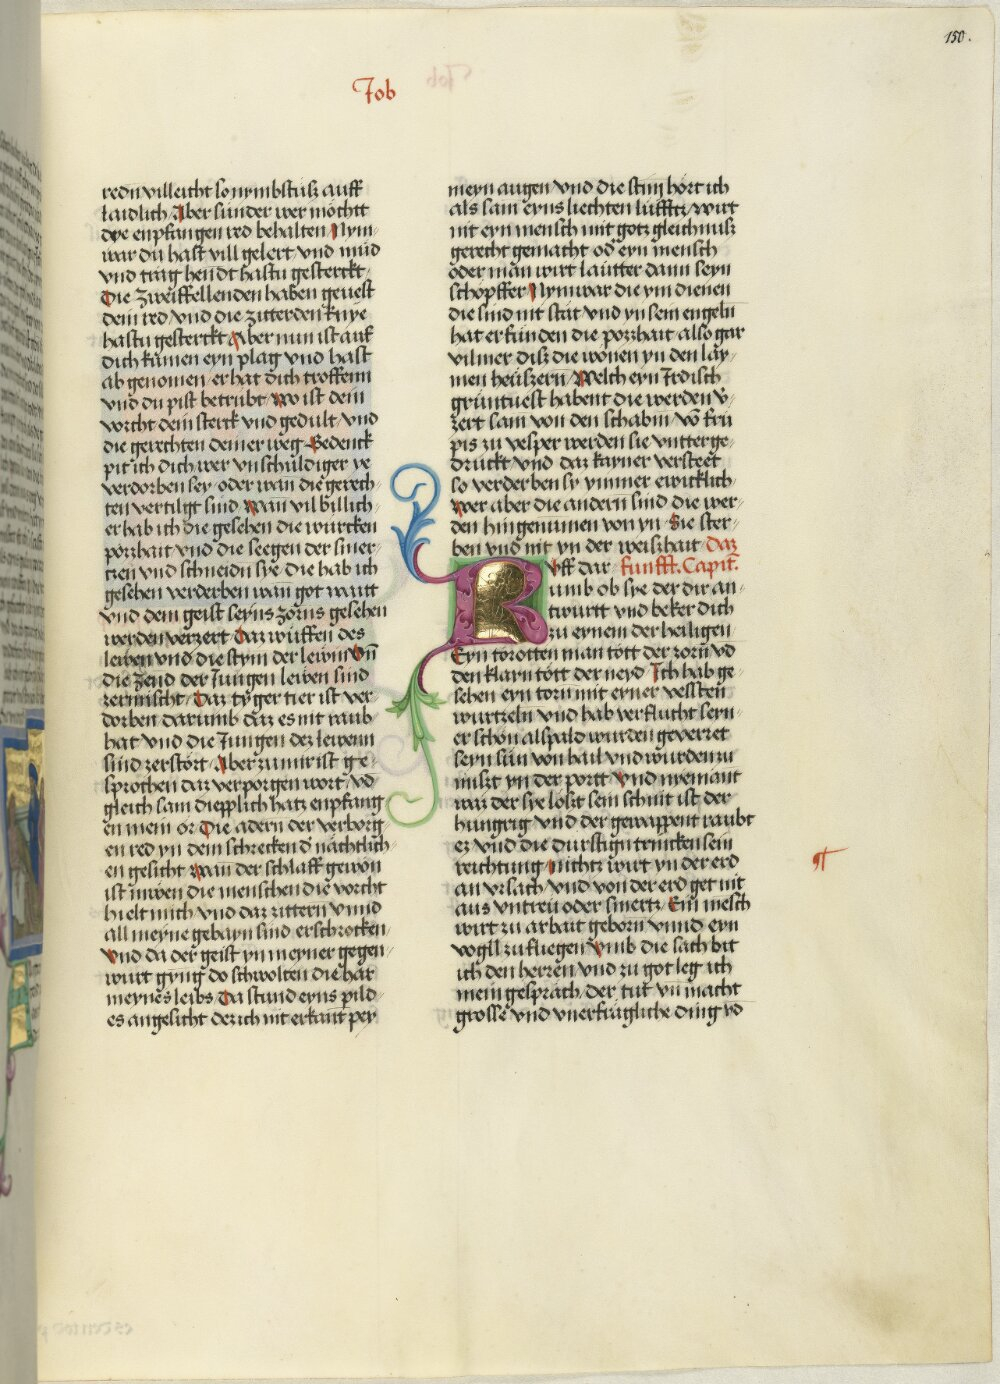 150.
Job
redn villeicht so nymbstusz auff
laidlich Aber sunder wer möchtt
dye enpfangen red behalten Nym
war du hast vill gelert vnd müd
vnd trag hendt hastu gesterckt
Die zweiffellenden haben geuest
dein red vnd die zitterden knye
hastu gesterckt Aber nun ist auf
dich kumen eyn plag vnd hast
ab genomen er hat dich troffenn
vnd du pist betrubt Wo ist dein
vorcht dein sterck vnd gedult vnd
die gerechten deiner weg Bedenck
pit ich dich wer vnschuldiger ye
verdorben sey oder wan die gerech
ten vertilgt sind Wan vil billich
er hab ich die gesehen die wurcken
poszhait vnd die seegen der smer
tzen vnd schneidn sye die hab ich
gesehen verderben wan got watt
vnd dem geist seyns zorns gesehen
werden verzert Daz wuffen des
lewen vnd die stym der lewin Vn̄
die zend der Jungen lewen sind
zermischt Daz tyger tier ist ver
dorben darumb daz es nit raub
hat vnd die Jungen dez lewenn
sind zerstört Aber zu mir ist ge
sprochen daz verporgen wort vd
gleich sam diepplich hatz enpfang
en mein or Die adern der verborg
en red yn dem schrecken d̄ nachtlich
en gesicht Wan der schlaff gewon
ist inwen die menschen die vorcht
hielt mich vnd daz zittern vnnd
all meyne gebayn sind erschrocken
Vnd da der geist yn meyner gegen
wurt gyng do schwolten die har
meynes leibs Da stund eyns pild
es angesicht dez ich nit erkant per
meyn augen vnd die stim hört ich
als sam eyns liechten lüfftz wirt
nit eyn mensch mit gotz gleichnusz
gerecht gemacht od eyn mensch
oder man wirt lautter dann seyn
schöpffer Nym war die ym dienen
die sind nit stät vnd yn sein engeln
hat er funden die poszhait also gar
vil mer disz die wonen yn den lay
men heuszern Welch eyn Irdisch
gruntuest habent die werden v̄
zert sam von den schabm vō fru
pis zu vesper werden sie vntter ge
druckt vnd daz kayner versteet
so verderben sy ymmer ewicklich
Wer aber die andern sind die wer
den hingenumen von yn Sie ster
ben vnd nit yn der weiszhait Daz
Rvff dar funfft. Capit̄.
vmb ob sye der dir an
twurtt vnd beker dich
zu eynem der heiligen
Eyn torotten man tött der zorn vd
den klayn tött der neyd Ich hab ge
sehen eyn torn mit eyner vessten
wurtzeln vnd hab verflucht seyn
er schön alspald wurden geverret
seyn sün von hail vnd wurden zu
miszt yn der portt Vnd nyemant
waz der sye loszt sein schnit ist der
hungrig vnd der gewappent raubt
ez vnd die durstign trincken sein
reichtung Nichtz wirt yn der erd
an vrsach vnd von der erd get nit
aus vntreu oder smertz Ein mesch
wirt zu arbait geborn vnnd eyn
vogll zu fliegen Vmb die sach bit
ich den herren vnd zu got leg ich
mein gesprach der tut vn̄ macht
grosse vnd vnerfragliche ding vd